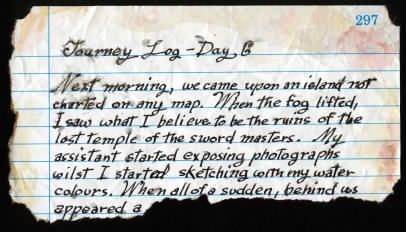 297
Journey Log - Day 6
Next morning, we came upon an island not
charted on any map. When the fog lifted,
I saw what I believe to be the ruins of the
lost temple of the sword masters. My
assistant started exposing photographs
wilst I started sketching with my water
colours. When all of a sudden, behind us
appeared a